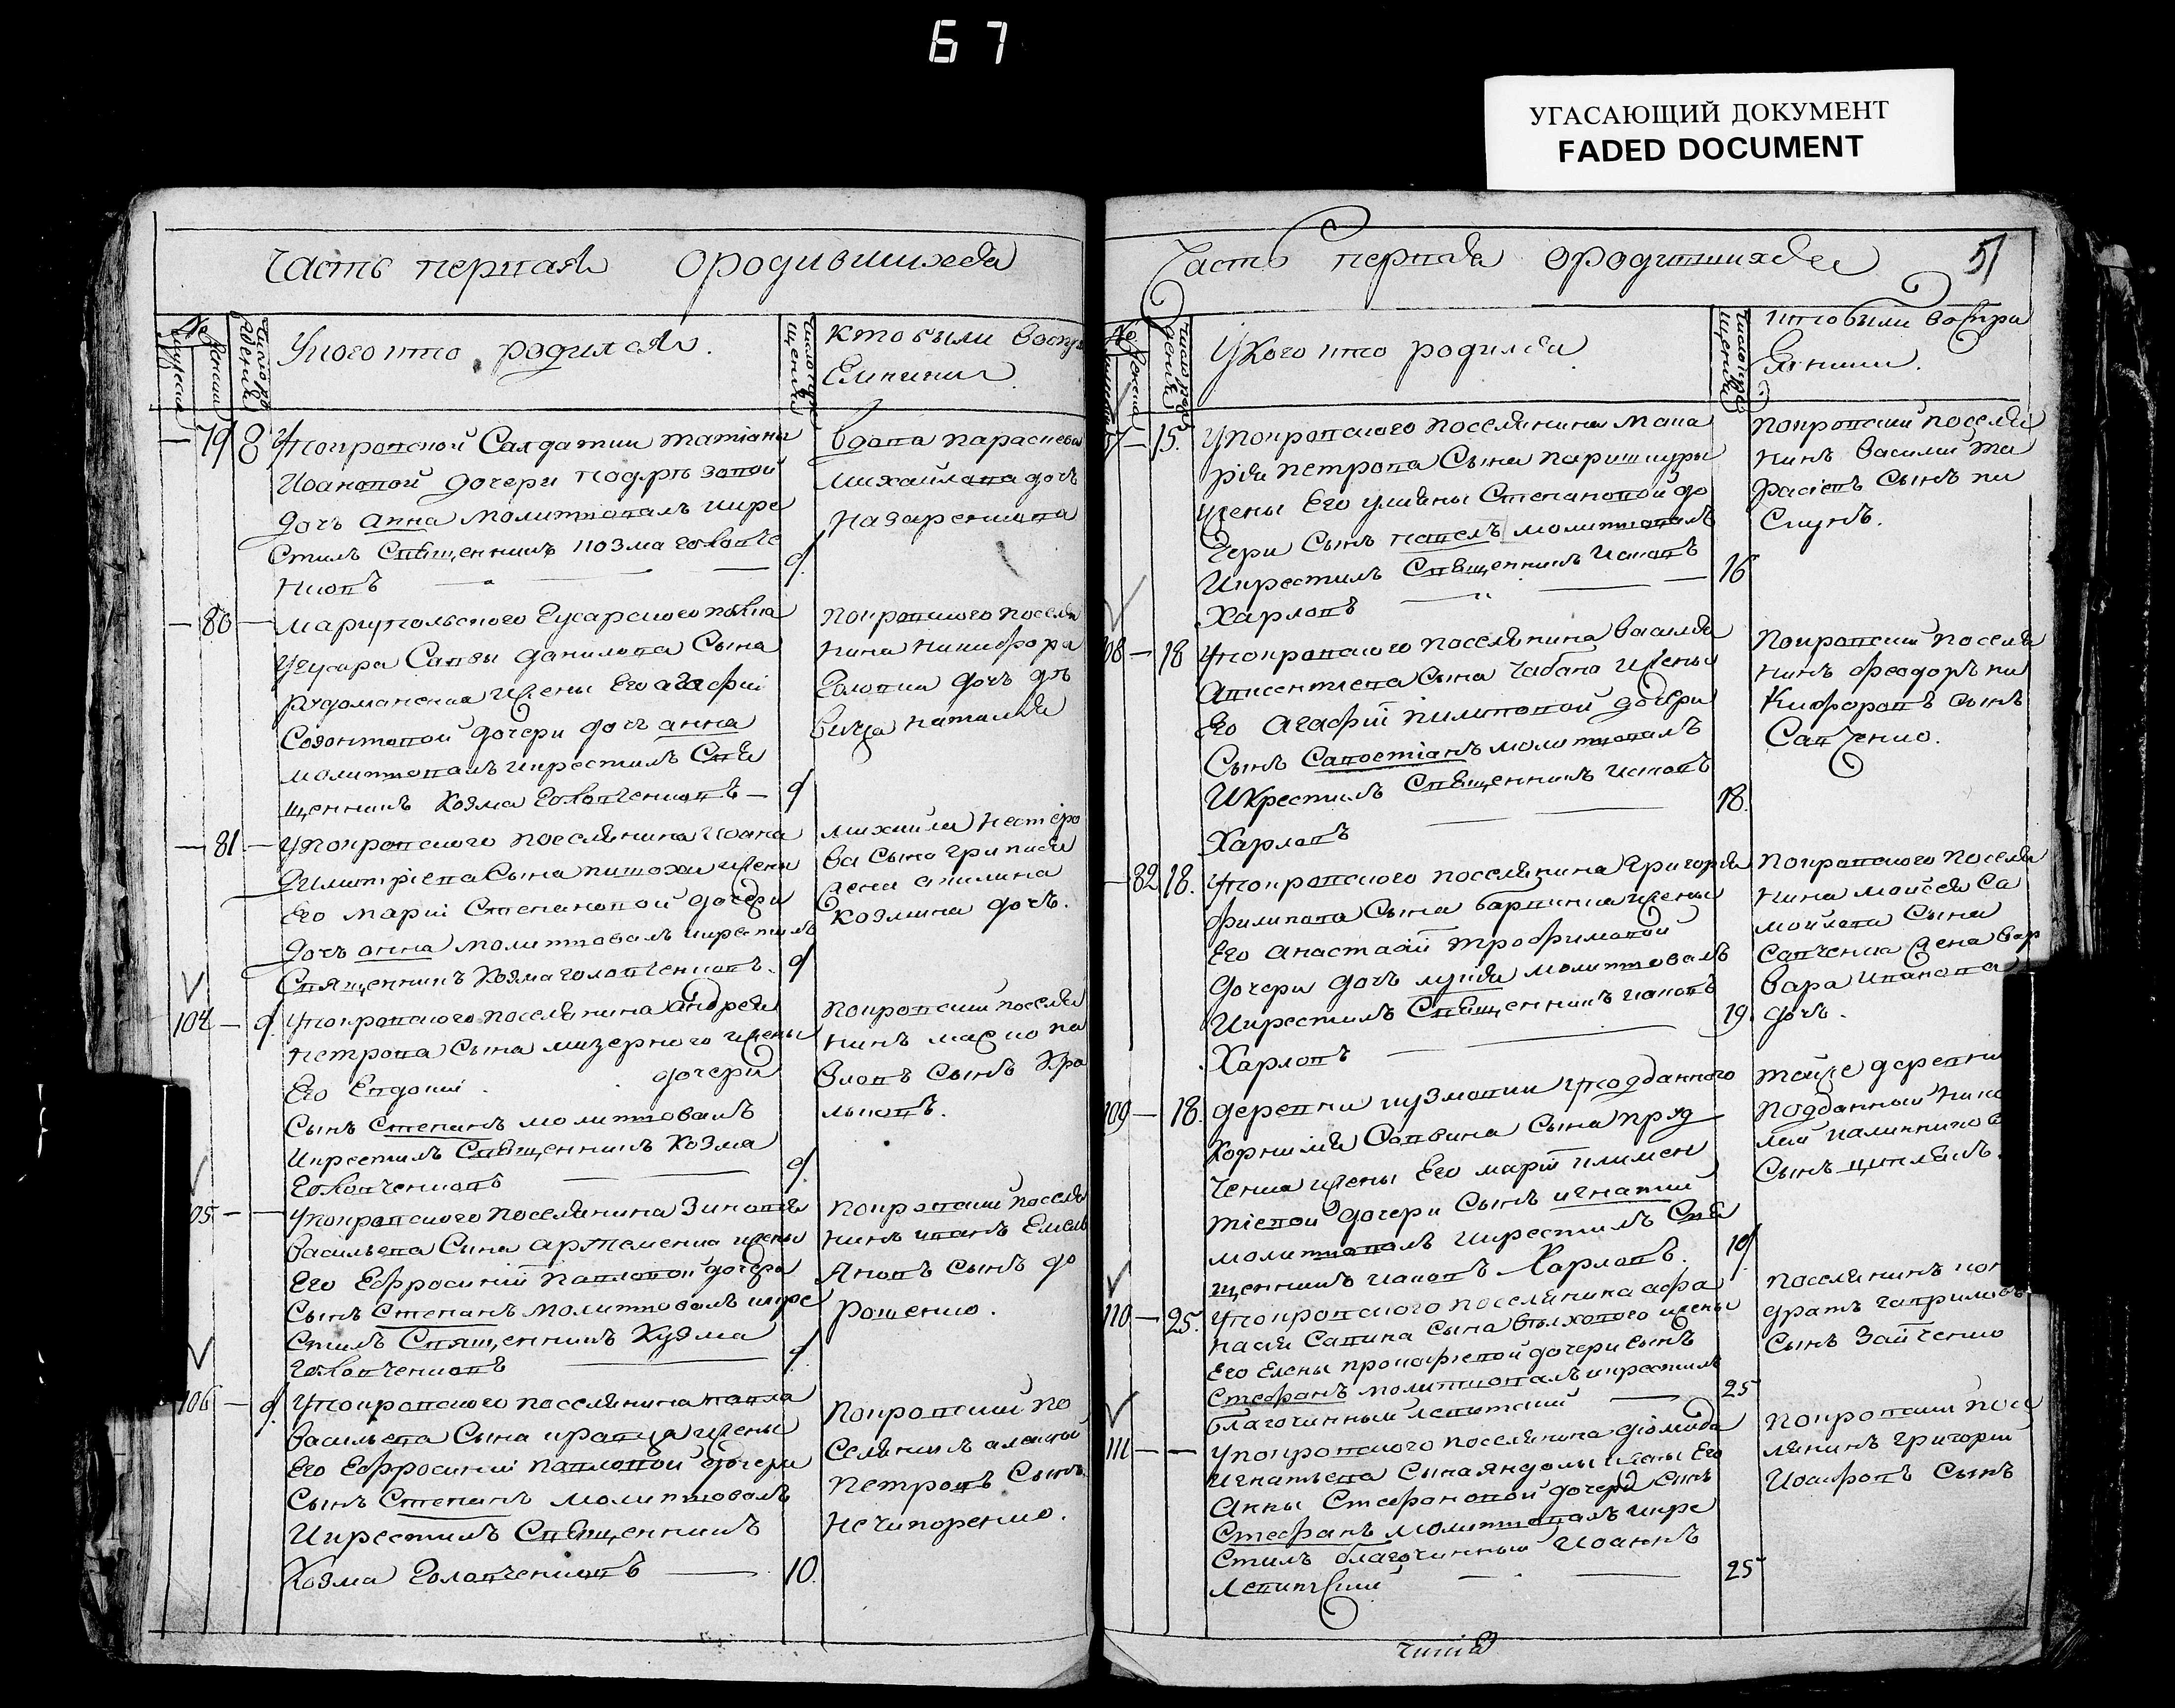 67
УГАСАЮЩИЙ ДОКУМЕНТ
FADED DOCUMENT
Часть первая ородившихся
№
Число ро
дения
Укого кто родился.
Число кре
щения
кто были воспри
Емники
79 8 Упокровской Салдатки татiаны
Ивановой дочери
дочь анна молитвовалъ икре
стилъ Священникъ козма голобче
нковъ 9
вдова параскева
михайлова дочь
назаренкова
80 мариупольского Гусарского полка
Угусара Саввы данилова Сына
жены Его агафiи
Созонтовой дочери дочь анна
молитвовалъ икрестилъ Свя
щенникъ Козма Голобченковъ 9
покровского поселя
нина никифора
дочь дѣ
вица наталия
81 Упокровского поселянина Ивана
димитрiева Сына жены
Его марiи Степановой дочери
дочь анна молитвовалъ икрестилъ
Священникъ Козма голобченковъ. 9
михайла нестеро
ва Сына
жена акилина
козмина дочь.
104 9 Упокровского поселянина андрея
петрова Сына мизерного жены
Его Евдокiи дочери
Сынъ Степанъ молитвовалъ
Икрестилъ Священникъ Козма
Голобченковъ 9
покровский поселя
нинъ
вловъ Сынъ
105 Упокровского поселянина Зиновiя
васильева Сина артеменка жены
Его Ефросинiи павловой дочери
Сынъ Степанъ молитвовалъ икре
стилъ Священникъ Кузма
Голобченковъ 9
покровский поселя
нинъ иванъ Емель
яновъ Сынъ до
рошенко.
106 9 Упокровского поселянина павла
васильева Сына кравца жены
Его Ефросинiи павловой дочери
Сынъ Степанъ молитвовалъ
Икрестилъ Священникъ
Козма Голобченковъ 10.
покровский по
селянинъ алексѣй
петровъ Сынъ
нечипоренко.
Часть первая ородившихся 51
№
Укого кто родился
кто были воспри
Емники.
15. Упокровского поселянина мака
рiя петрова Сына паришкуры
жены Его улияны Степановой до
чери Сынъ павелъ молитвовалъ
Икрестилъ Священникъ Иаковъ
Харловъ 16
покровский поселя
нинъ василий та
расiевъ Сынъ пи
скунъ.
108 18 Упокровского поселянина василия
авксентиева Сына чабана жены
Его Агафiи пилиповой дочери
Сынъ Савостiанъ молитвовалъ
Икрестилъ Священникъ иаковъ
Харловъ 18.
покровский поселя
нинъ феодоръ ни
кифоровъ сынъ
Савченко.
82 18. Упокровского поселянина григория
филипова Сына жены
Его анастасiи трофимовой
дочери дочь лукия молитвовалъ
Икрестилъ Священникъ иаковъ
Харловъ 19.
покровского поселя
нина мойсея са
мойлова Сына
савченка жена вар
вара иванова
дочь.
109 18. деревни кузмовки уподданного
Корнилия Саввина Сына пряд
ченка жены Его марiи климен
тiевой дочери Сынъ игнатий
молитвовалъ икрестилъ Свя
щенникъ иаковъ Харловъ. 19
тойже деревни
подданный нико
лай калинниковъ
Сынъ ципликъ.
110 25. Упокровского поселянина афа
насия Савина Сына жены
Его Елены прокофiевой дочери сынъ
Стефанъ молитвовалъ икрестилъ
благочинный левитский 25
поселянинъ кон
дратъ гавриловъ
Сынъ Зайченко
111 Упокровского поселянина дiомида
игнатьева Сына яндолы жены Его
Анны Стефановой дочери Синъ
Стефанъ молитвовалъ икре
стилъ благочинный Иоаннъ
Левитский 25
покровский посе
лянинъ григорий
Иосифовъ Сынъ